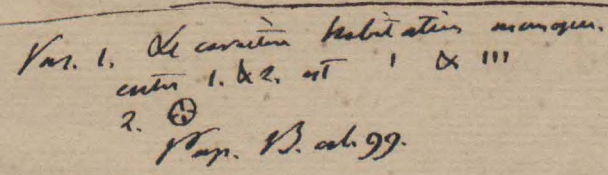 Var. 1. Le caractère habitatin manque.
entre 1. & 2. est I & III
2.
Pap. B. col. 99.